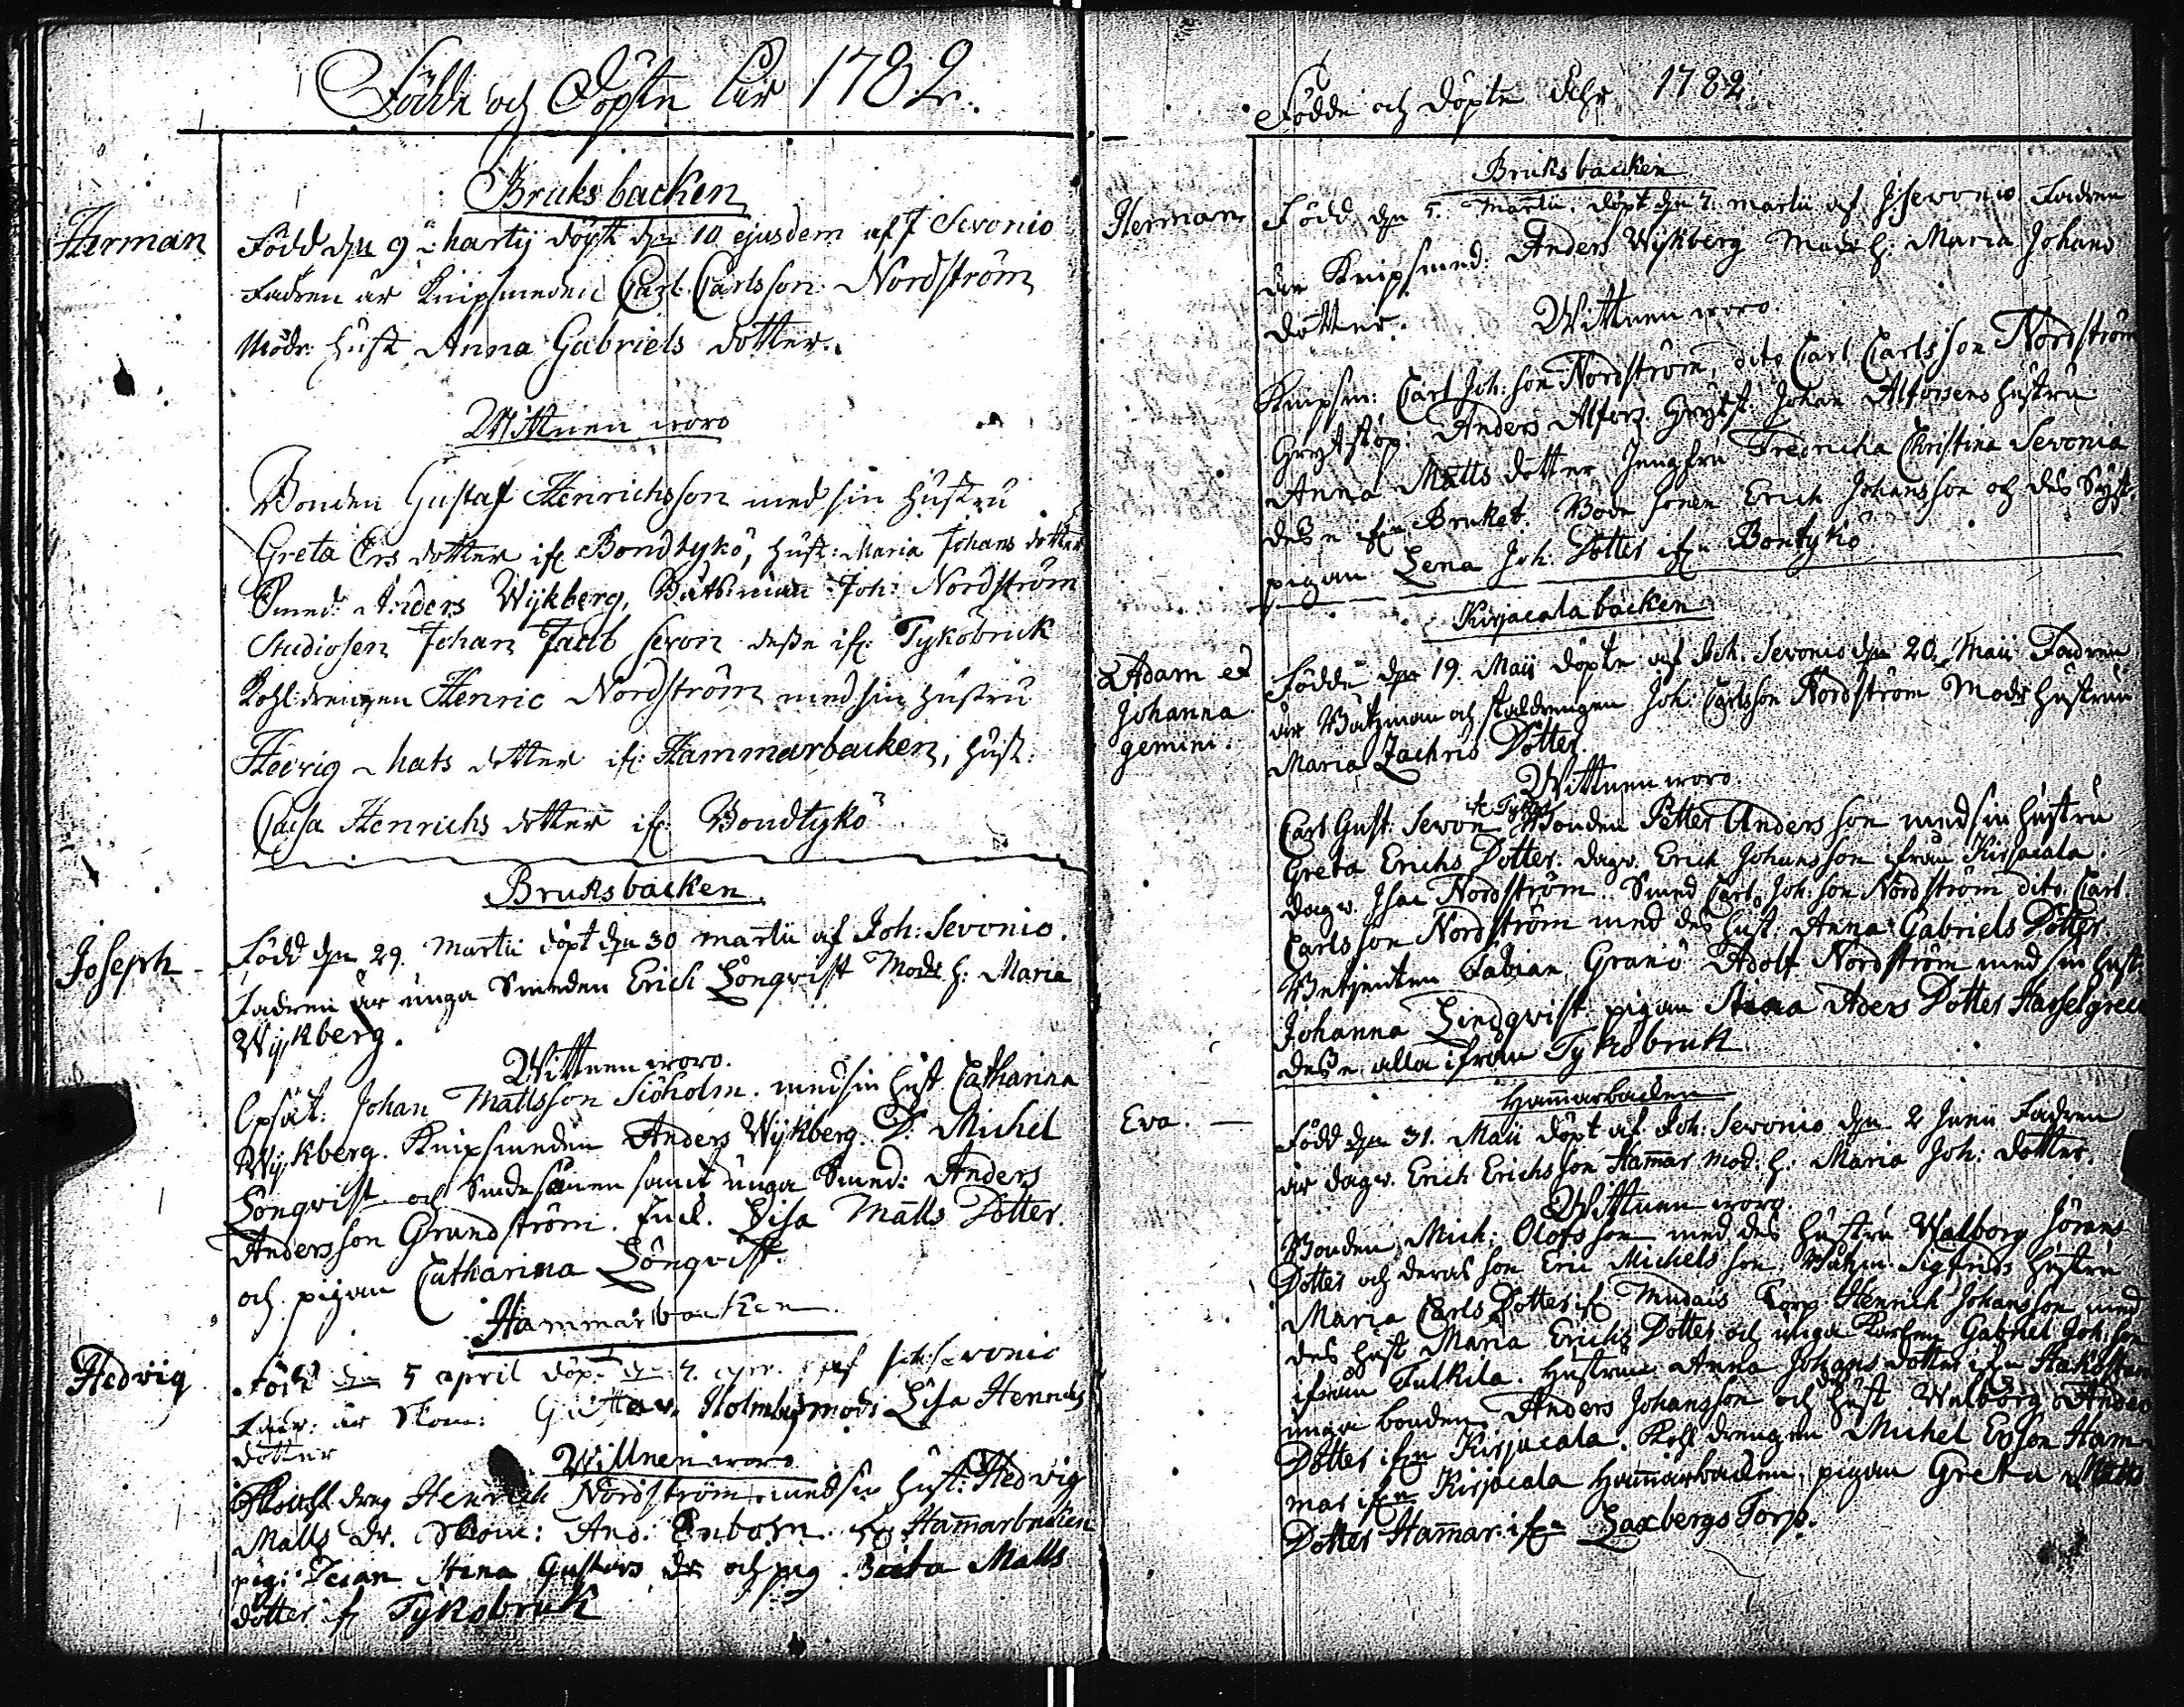 Födde och Döpte åhr 1782.
Bruksbacken
Herman
Född den 9 Martij döpt den 10 ejusdem af J Sevonio
Fadren är Knipsmeden Carl Carlsson Nordström
Modr: Hust Anna Gabriels dotter.
Wittnen woro
Bonden Gustaf Henrichsson med sin hustru
Greta Ers dotter if: Bondtykö, hust: Maria Johans dotter
Smed: Anders Wijkberg, Båtsman Joh: Nordström
Studiosen Johan Jacob Sevon desse if: Tykobruk
Kohldrengen Henric Nordström med sin hustru
Hedvig Mats dotter if: Hammarbacken, hust:
Caisa Henrichs dotter if: Bondtykö
Bruksbacken.
Joseph
Född den 29. Martii döpt den 30 martii af Joh: Sevonio.
Fadren är unga Smeden Erich Lönqvist Modr h: Maria
Wijkberg.
Wittnen woro.
Johan Mattsson Siöholm. med sin hust Catharina
Wijkberg. Knipsmeden Anders Wijkberg. D: Michel
Lönqvist och samt unga Smed: Anders
Andersson Grundström. Lisa Matts Dotter.
och pigan Catharina Lönqvist.
Hammarbacken
Hedvig
Född den 5 april döpt den 7. af Joh: Sevonio
Fadr: är Holmberg modr Lisa Henrichs
dotter
Wittnen woro
dreng Henrich Nordström med sin hust: Hedvig
Matts dr. And: Enbom Hammarbacken
pig: Stina Gustavs dr och pig Beata Matts
dotter if Tykobruk
Födde och döpte åhr 1782
Bruksbacken
Herman
Född den 5. Martii. döpt den 7. martii af J Sevonio Fadren
är Knipsmed: Anders Wijkberg Modr h: Maria Johans
dotter.
Wittnen woro.
Knipsm: Carl Joh: son Nordström, dito Carl Carlsson Nordström
Grytstöp: Anders Alfors. Grytst: Johan Alforsens hustru
Anna Matts dotter Jungfru Fredricha Christina Sevonia
desse ifrn Bruket. Bonde sonen Erich Johansson och des Syst.
pigan Lena Joh: Dotter ifrn Bontykö
Kirjacala backen
Adam et
Johanna
gemini.
Födde den 19. Maii döpte af Joh. Sevonio den 20. Maii Fadren
är Båtzman och Staldrengen Joh: Carlsson Nordström Modr hustrun
Maria Zachris Dotter.
Wittnen woro.
if Tyko
Carl Gust. Sevon Bonden Petter Andersson med sin hustru
Greta Erichs Dotter. dagv. Erich Johansson ifrån Kirjacala.
dagv. Isac Nordström. Smed Carl Joh: son Nordström dito Carl
Carlsson Nordström med des hust: Anna Gabriels Dotter.
Betjenten Fabian Granö Adolf Nordström med sin hust:
Johanna Lindqvist pigan Stina Aders Dotter Hasselgreen
desse alla ifrån Tykobruk
Hammarbacken
Eva.
Född den 31. Maii döpt af Joh: Sevonio den 2 Junii Fadren
är dagv. Erich Erichsson Hammar mod: h: Maria Joh: dotter.
Wittnen woro.
Bonden Mich: Olofsson med des hustru Walborg Jörans
Dotter och deras son Eric Michelsson, Båtzm. Sigfrids hustru
Maria Carls Dotter if Mudais Torp: Henrich Johansson med
des hust Maria Erichs Dotter och unga Gabriel Joh: son
ifrån Tulkila. hustrun Anna Johans dotter ifrn
unga bonden Anders Johansson och des hust Walborg Anders
Dotter ifrn Kirjacala. Kohl drengen Michel Ersson Ham-
mar ifrn Kirjacala Hammarbacken, pigan Greta Matts
Dotter Hammar ifrn Laxbergs Torp.